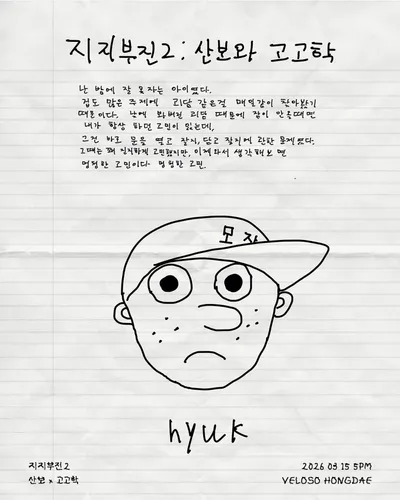 지지부진2: 산보와 고고학
난 밤에 잘 못자는 아이였다.
겁도 많은 주제에 괴담 같은걸 매일같이 찾아봤기
때문이다. 낮에 봐버린 괴담 때문에 잠이 안올때면
내가 항상 하던 고민이 있는데,
그건 바로 문을 열고 잘지, 닫고 잘지에 관한 문제였다.
그때는 꽤 진지하게 고민했지만, 이제와서 생각해보면
멍청한 고민이다. 멍청한 고민.
모자
hyuk
지지부진2
산보 x 고고학
2026 03 15 5PM
VELOSO HONGDAE